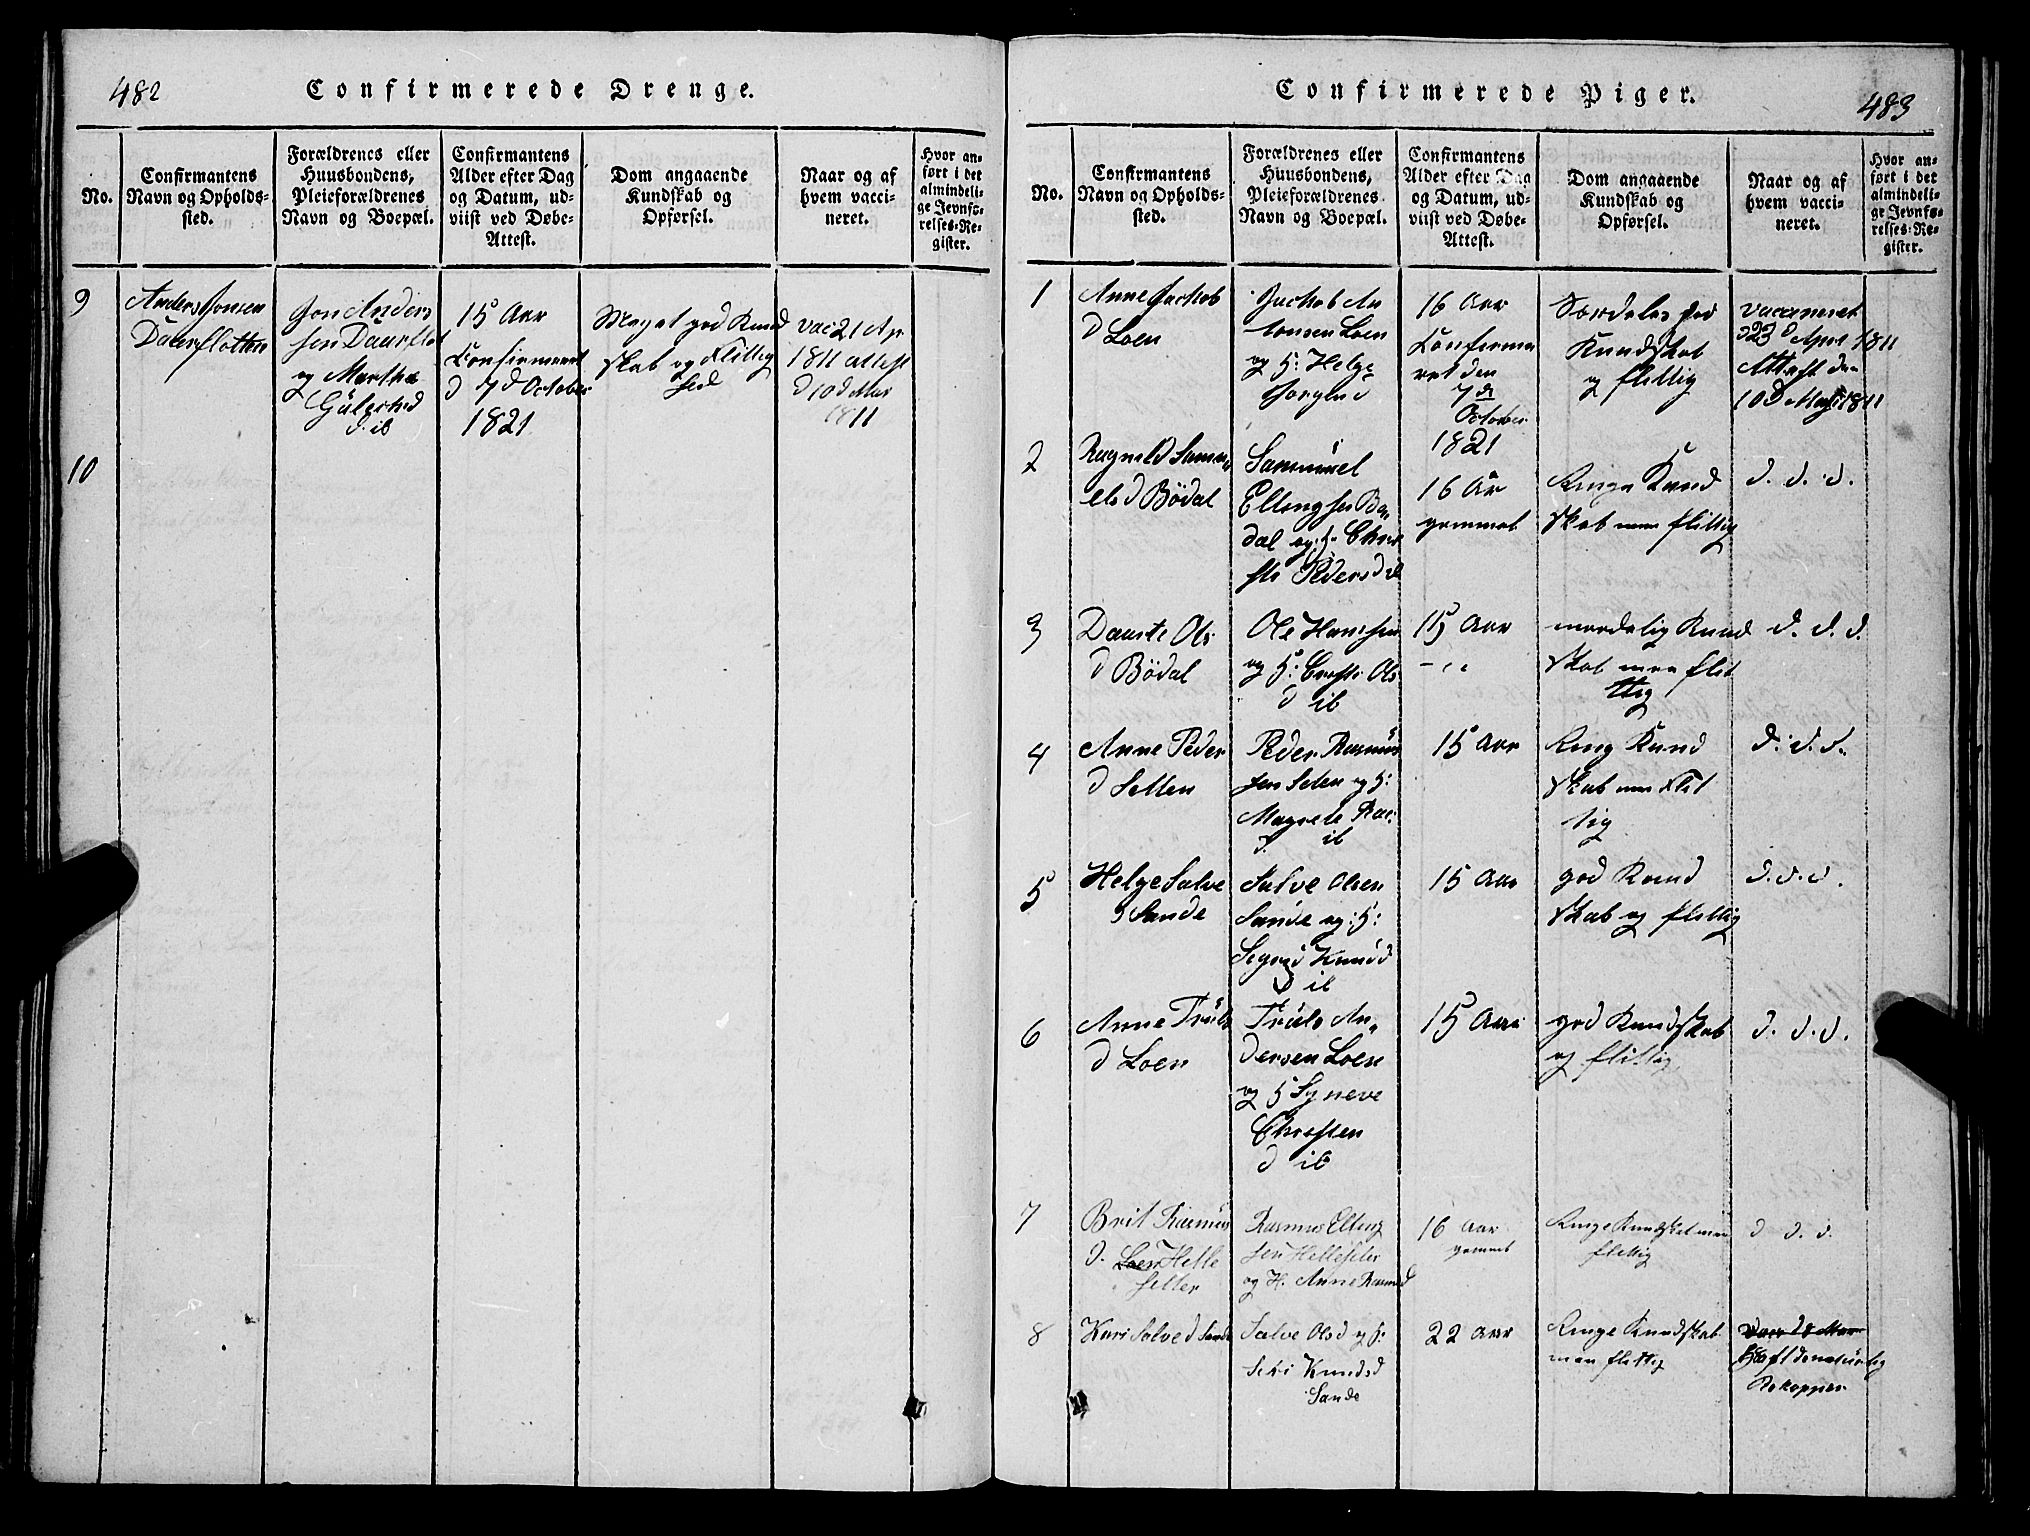 482
Confirmerede Drenge.
No.
Confirmantens
Navn og Opholds-
sted.
Forældrenes eller
Huusbondens,
Pleieforældrenes
Navn og Boepæl.
Confirmantens
Alder efter Dag
og Datum, ud-
viist ved Døbe-
Attest.
Dom angaaende
Kundskab og
Opførsel.
Naar og af
hvem vacci-
neret.
Hvor an-
ført i det
almindeli-
ge Jevnfø-
relses-Re-
gister.
9
Anders Jonsen
Daarflotten
Jon Anders
sen Daarflot
og Martha
d ib
15 Aar
Confirmeret
d 7d October
1821
Meget god Kund
skab og Flittig
hed
vac: 21 Ap
1811 attest
d 10d Mai
1811
10
Confirmerede Piger.
483
No.
Confirmantens
Navn og Opholds-
sted.
Forældrenes eller
Huusbondens,
Pleieforældrenes
Navn og Boepæl.
Confirmantens
Alder efter Dag
og Datum, ud-
viist ved Døbe-
Attest.
Dom angaaende
Kundskab og
Opførsel.
Naar og af
hvem vacci-
neret.
Hvor an-
ført i det
almindeli-
ge Jevnfø-
relses-Re-
gister.
1
Anne Jachob
d Loen
Jachob An
tonsen Loen
og H: Helge
16 Aar
Confirme
ret den
7de
October
1821
Særdeles god
Kundskab
og flittig
vaccineret
23d April 1811
Attest den
10d Maji 1811
2
Ragnild Samu
els d Bödal
Sammuel
Ellingsen Bö
dal og H: Chri
sti Pedersd ib
16 Aar
gammel
Ringe Kund
skab men flittig
d. d. d.
3
Daarte Ols
d Bödal
Ole Hansen
og H: Cristi Ols
d ib
15 Aar
maadelig Kund
skab men flit
tig
d. d. d.
4
Anne Peder
d Setten
Peder Rasmus
sen Seten og H:
Magrete Ras:
d. ib
15 Aar
Ring Kund
skab men Flit
tig
d. d. d.
5
Helge Salve
d Sande
Salve Olsen
Sande og: H:
Sigrid Knud
d ib
15 Aar
god Kund
skab og flittig
d. d. d.
6
Anne Truls
d Loen
Truls An,,
dersen Loen
og H Syneve
Christen
d ib
15 Aar
god Kundskab
og flittig
d. d. d.
7
Brit Rasmus
d. Loen Helle
setter
Rasmus Elling
sen Hellesetter
og H. Anne Rasmusd
16 Aar
gammel
Ringe Kundskab men
flittig
d d. d.
8
Kari Salve d Sande
Salve Olsd og H:
Knudsd
Sande
22 Aar
Ringe Kundskab
men flittig
havt de naturlig
Bokopper